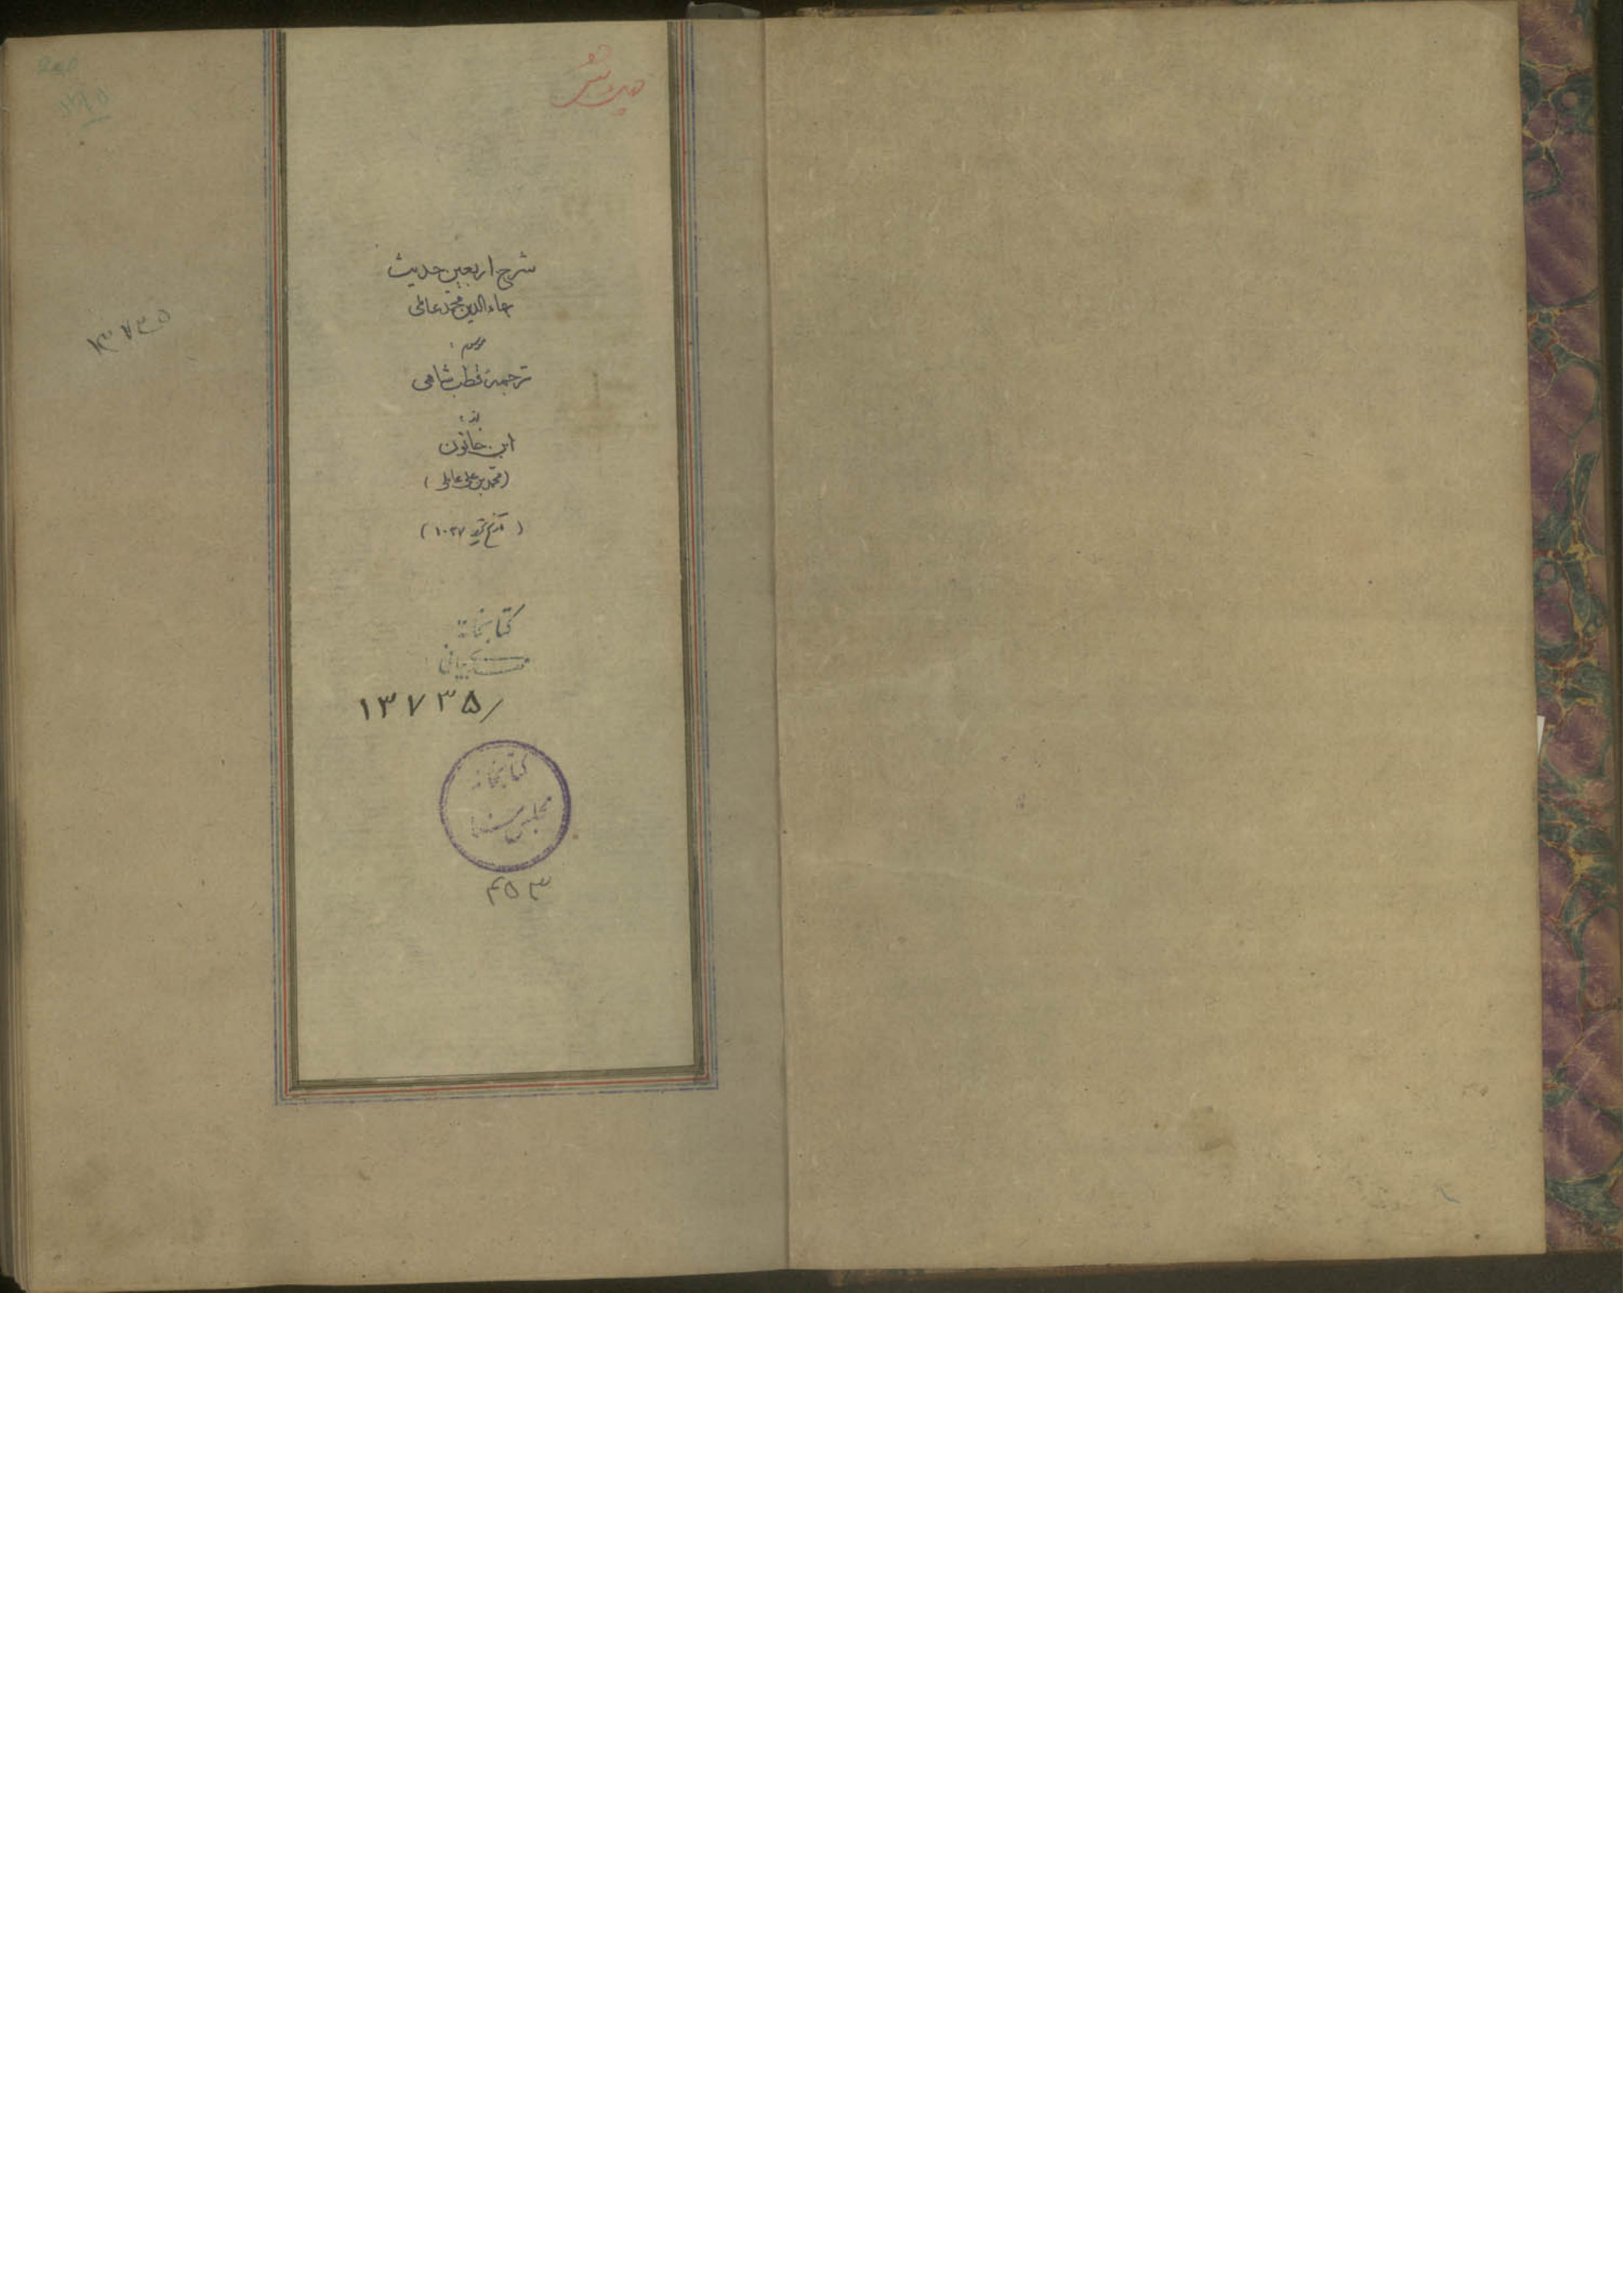 شرح اربعین حدیث
بهاءالدین محمد عاملی
موسوم:
ترجمهٔ قطب شاهی
از:
ابن خاتون
(محمد بن علی عاملی)
(تاریخ تحریر ۱۰۲۷)
کتابخانه
۱۳۷۳۵/
کتابخانه
مجلس سنا
۴۵۳
۱۳۷۳۵